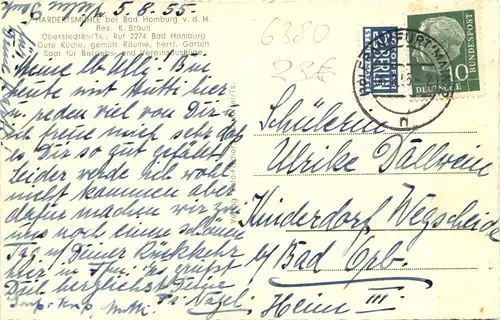 HARDERTSMÜHLE bei Bad Homburg v. d. H. 5.8.55.
Bes. K. Braun
Oberstedten/Ts., Ruf 2274 Bad Homburg
Gute Küche, gemütl. Räume, herrl. Garten
Saal für Betriebs- und Vereinsausflüge
6380
Meine lb Ulli! Bin
heute mit Mutti hier
u. reden viel von Dir
ich freue mich sehr daß
es Dir so gut gefällt
leider werde ich wohl
nicht kommen aber
dafür machen wir
uns noch einen schönen
Tag n. Deiner Rückkehr
hier in Ffm. Es grüßt
Dich herzlichst Deine
Fr. Nagel
Mutti
NOTOPFER
2 BERLIN
STEUERMARKE
FRANKFURT (MAIN)
n
10
DEUTSCHE
BUNDESPOST
Schülerin
Ulrike
Kinderdorf Wegscheide
b/ Bad Orb.
Heim III